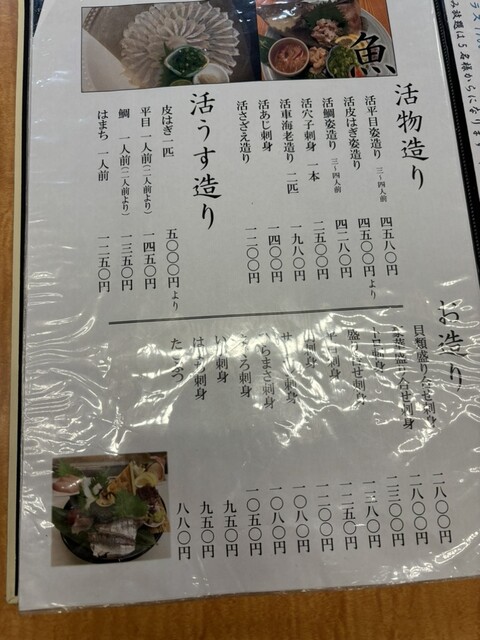 み放題は5名様からになります
魚
活物造り
活平目姿造り 三〜四人前 四五八〇円
活皮はぎ姿造り 四五〇〇円より
活鯛姿造り 三〜四人前 四二八〇円
活穴子刺身 一本 二五〇〇円
活車海老造り 二匹 一九八〇円
活あじ刺身 一四〇〇円
活さざえ造り 一二〇〇円
活うす造り
皮はぎ一匹 五〇〇〇円より
平目 一人前(二人前より) 一四五〇円
鯛 一人前(二人前より) 一三五〇円
はまち 一人前 一二五〇円
お造り
貝類盛り合せ刺身 二八〇〇円
盛り合せ刺身 二八〇〇円
トロ刺身 二三〇〇円
盛り合せ刺身 一三八〇円
平目刺身 一二五〇円
刺身 一二〇〇円
サーモン刺身 一〇八〇円
ひらまさ刺身 一〇八〇円
まぐろ刺身 一〇五〇円
いか刺身 九五〇円
はまち刺身 九五〇円
たこぶつ 八八〇円